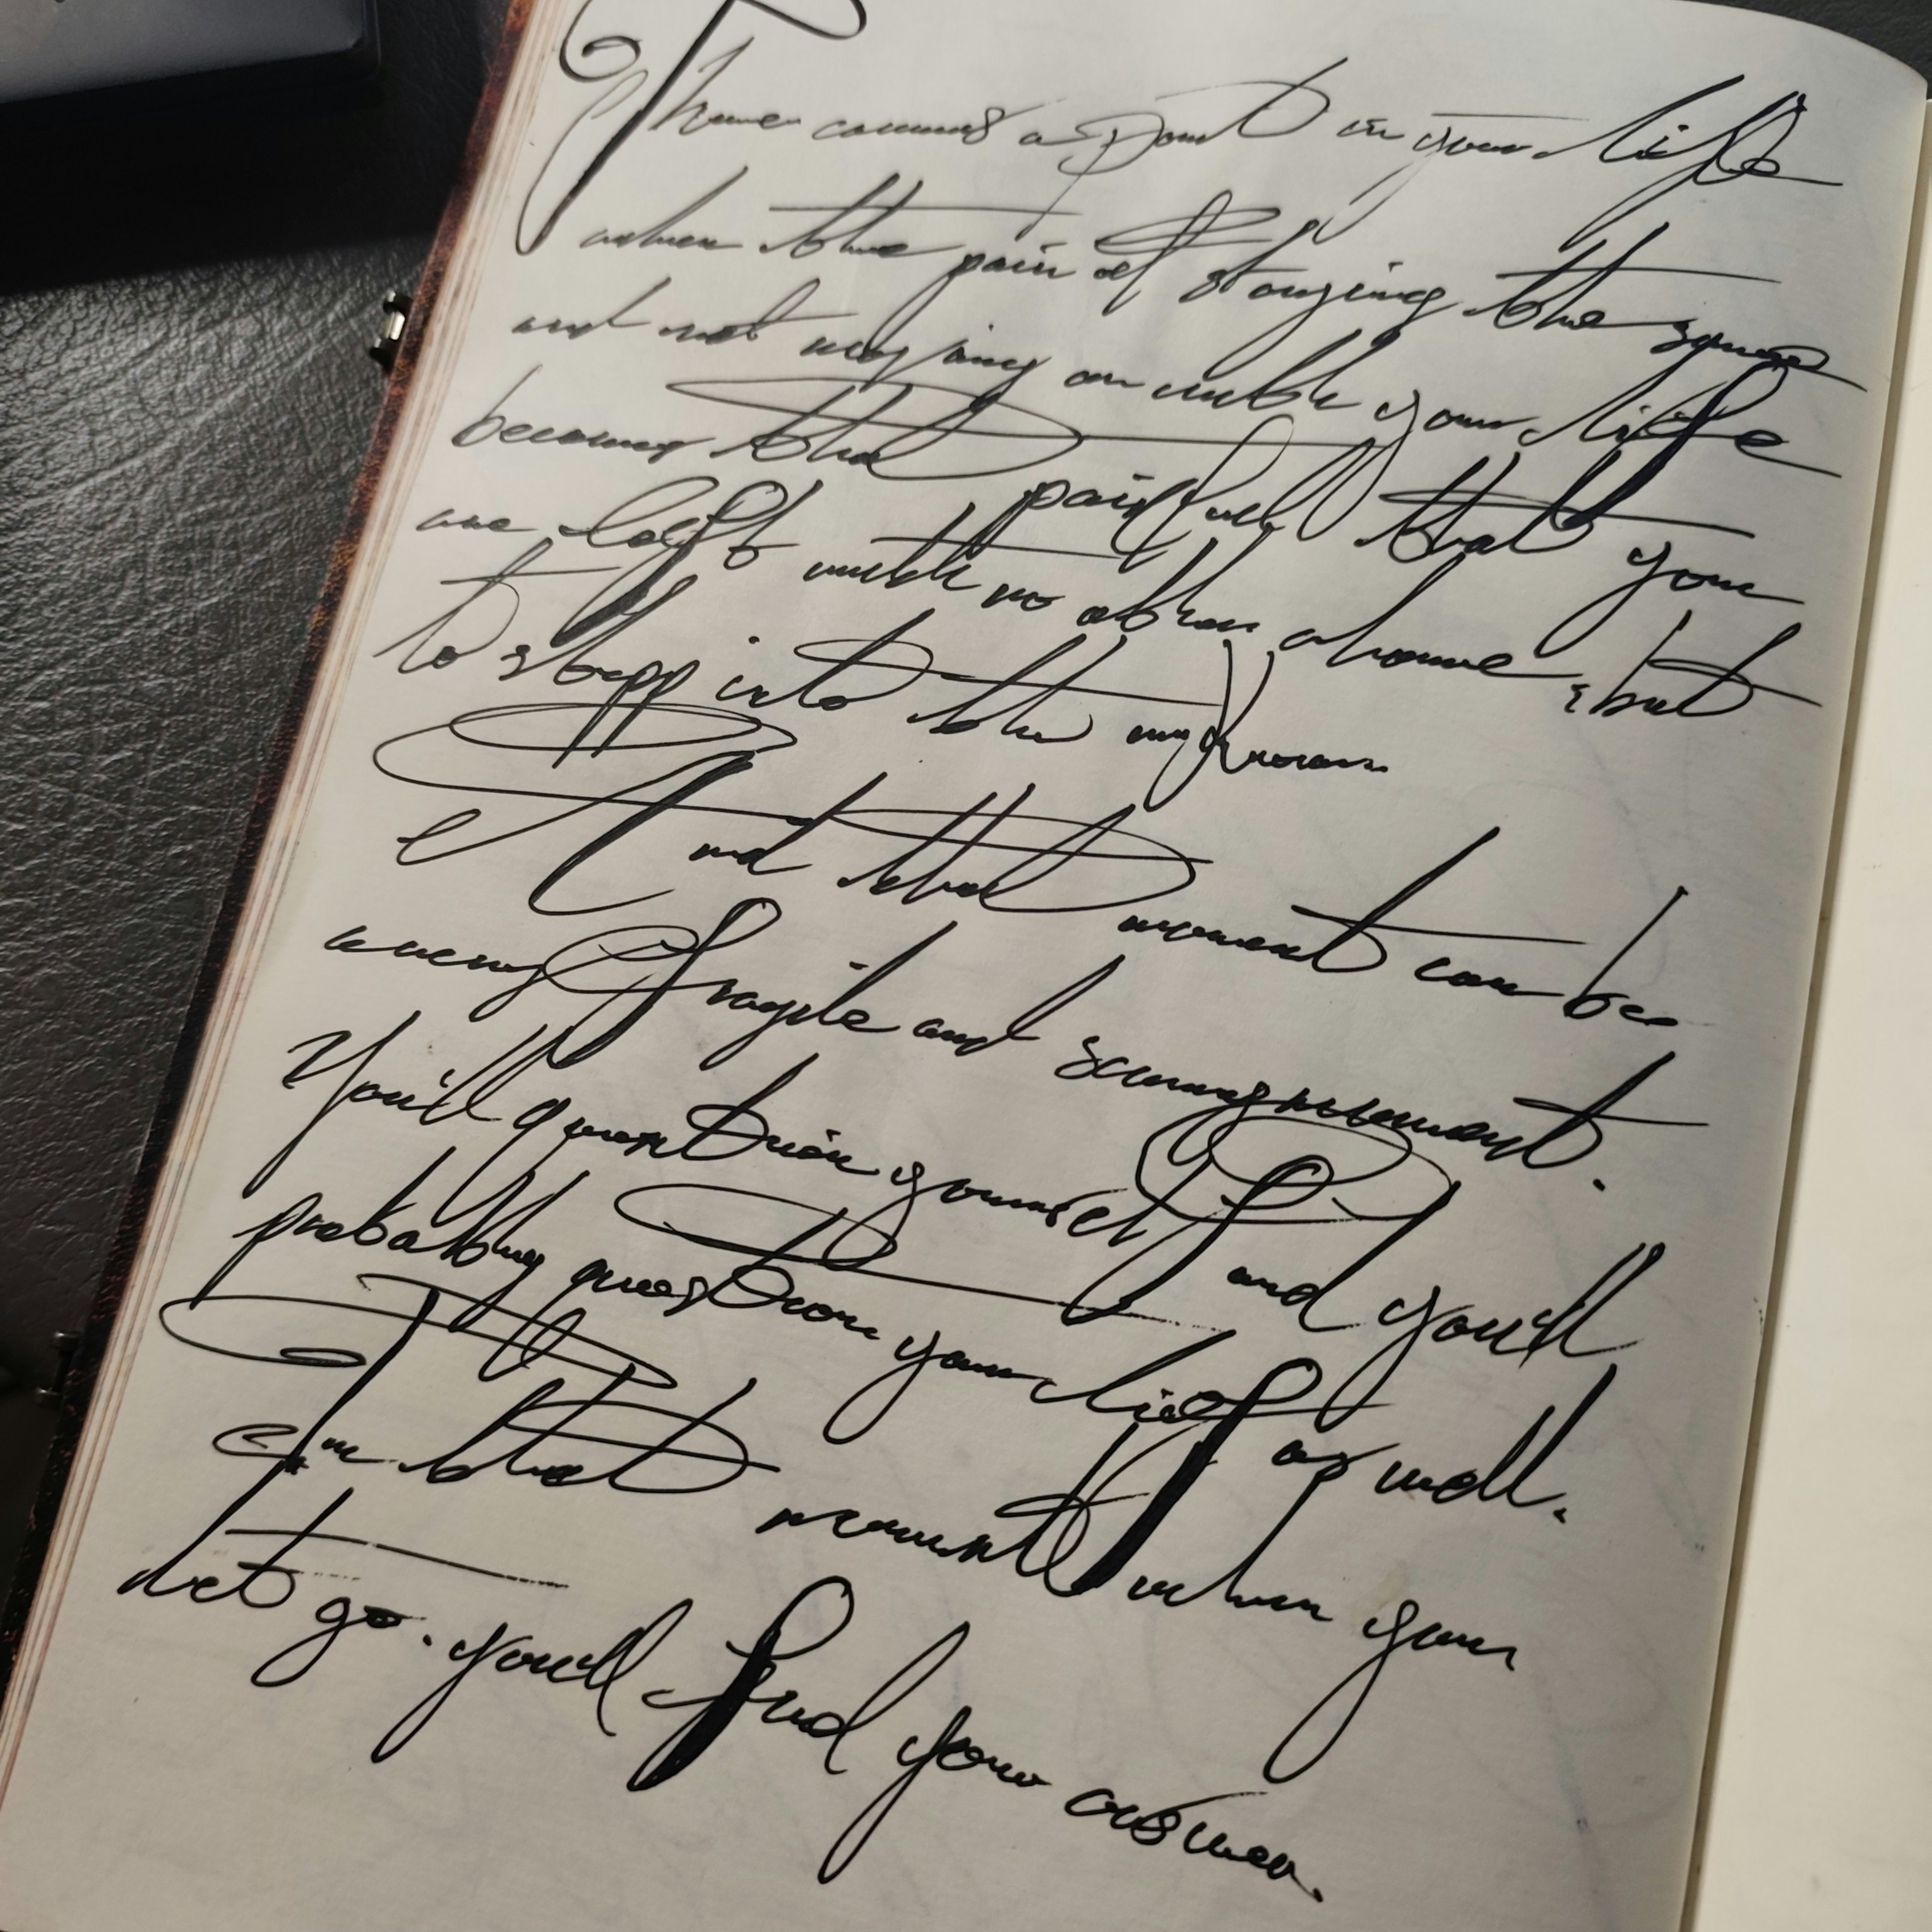 There comes a point in your life
when the pain of staying the same
and not nagging on with your life
becomes that painfull that you
are left with no other choice, but
to stepp into the unknown
And that moment can be
a very fragile and
You'll question yourself and you'll
probably question your life as well.
In that moment when you
let go. you'll find your answer.